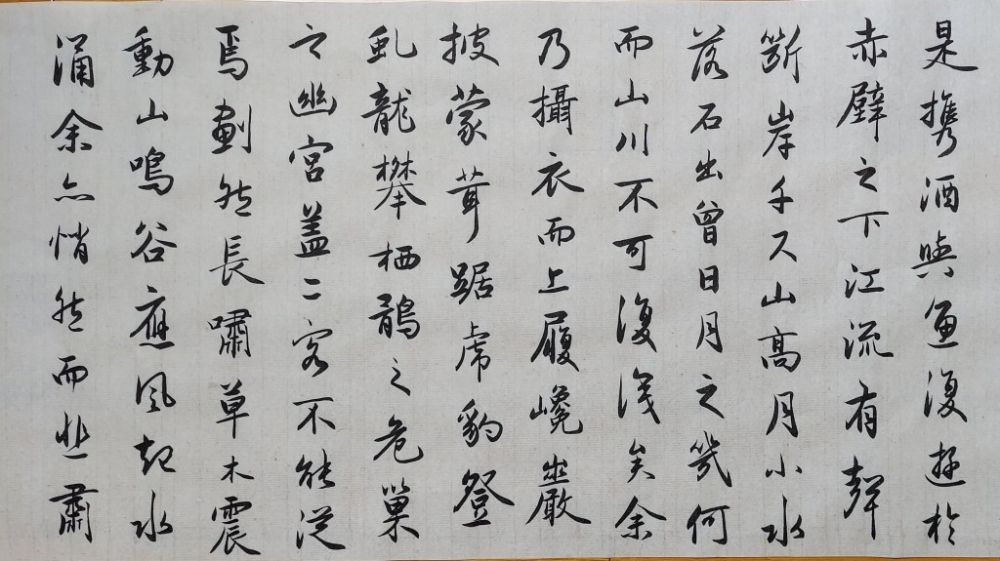 是携酒與魚復遊於
赤壁之下江流有聲
斷岸千尺山高月小水
落石出曾日月之幾何
而山川不可復識矣余
乃攝衣而上履巉巖
披蒙茸踞虎豹登
虬龍攀栖鶻之危巢
之幽宮盖二客不能從
焉劃然長嘯草木震
動山鳴谷應風起水
涌余亦悄然而悲肅